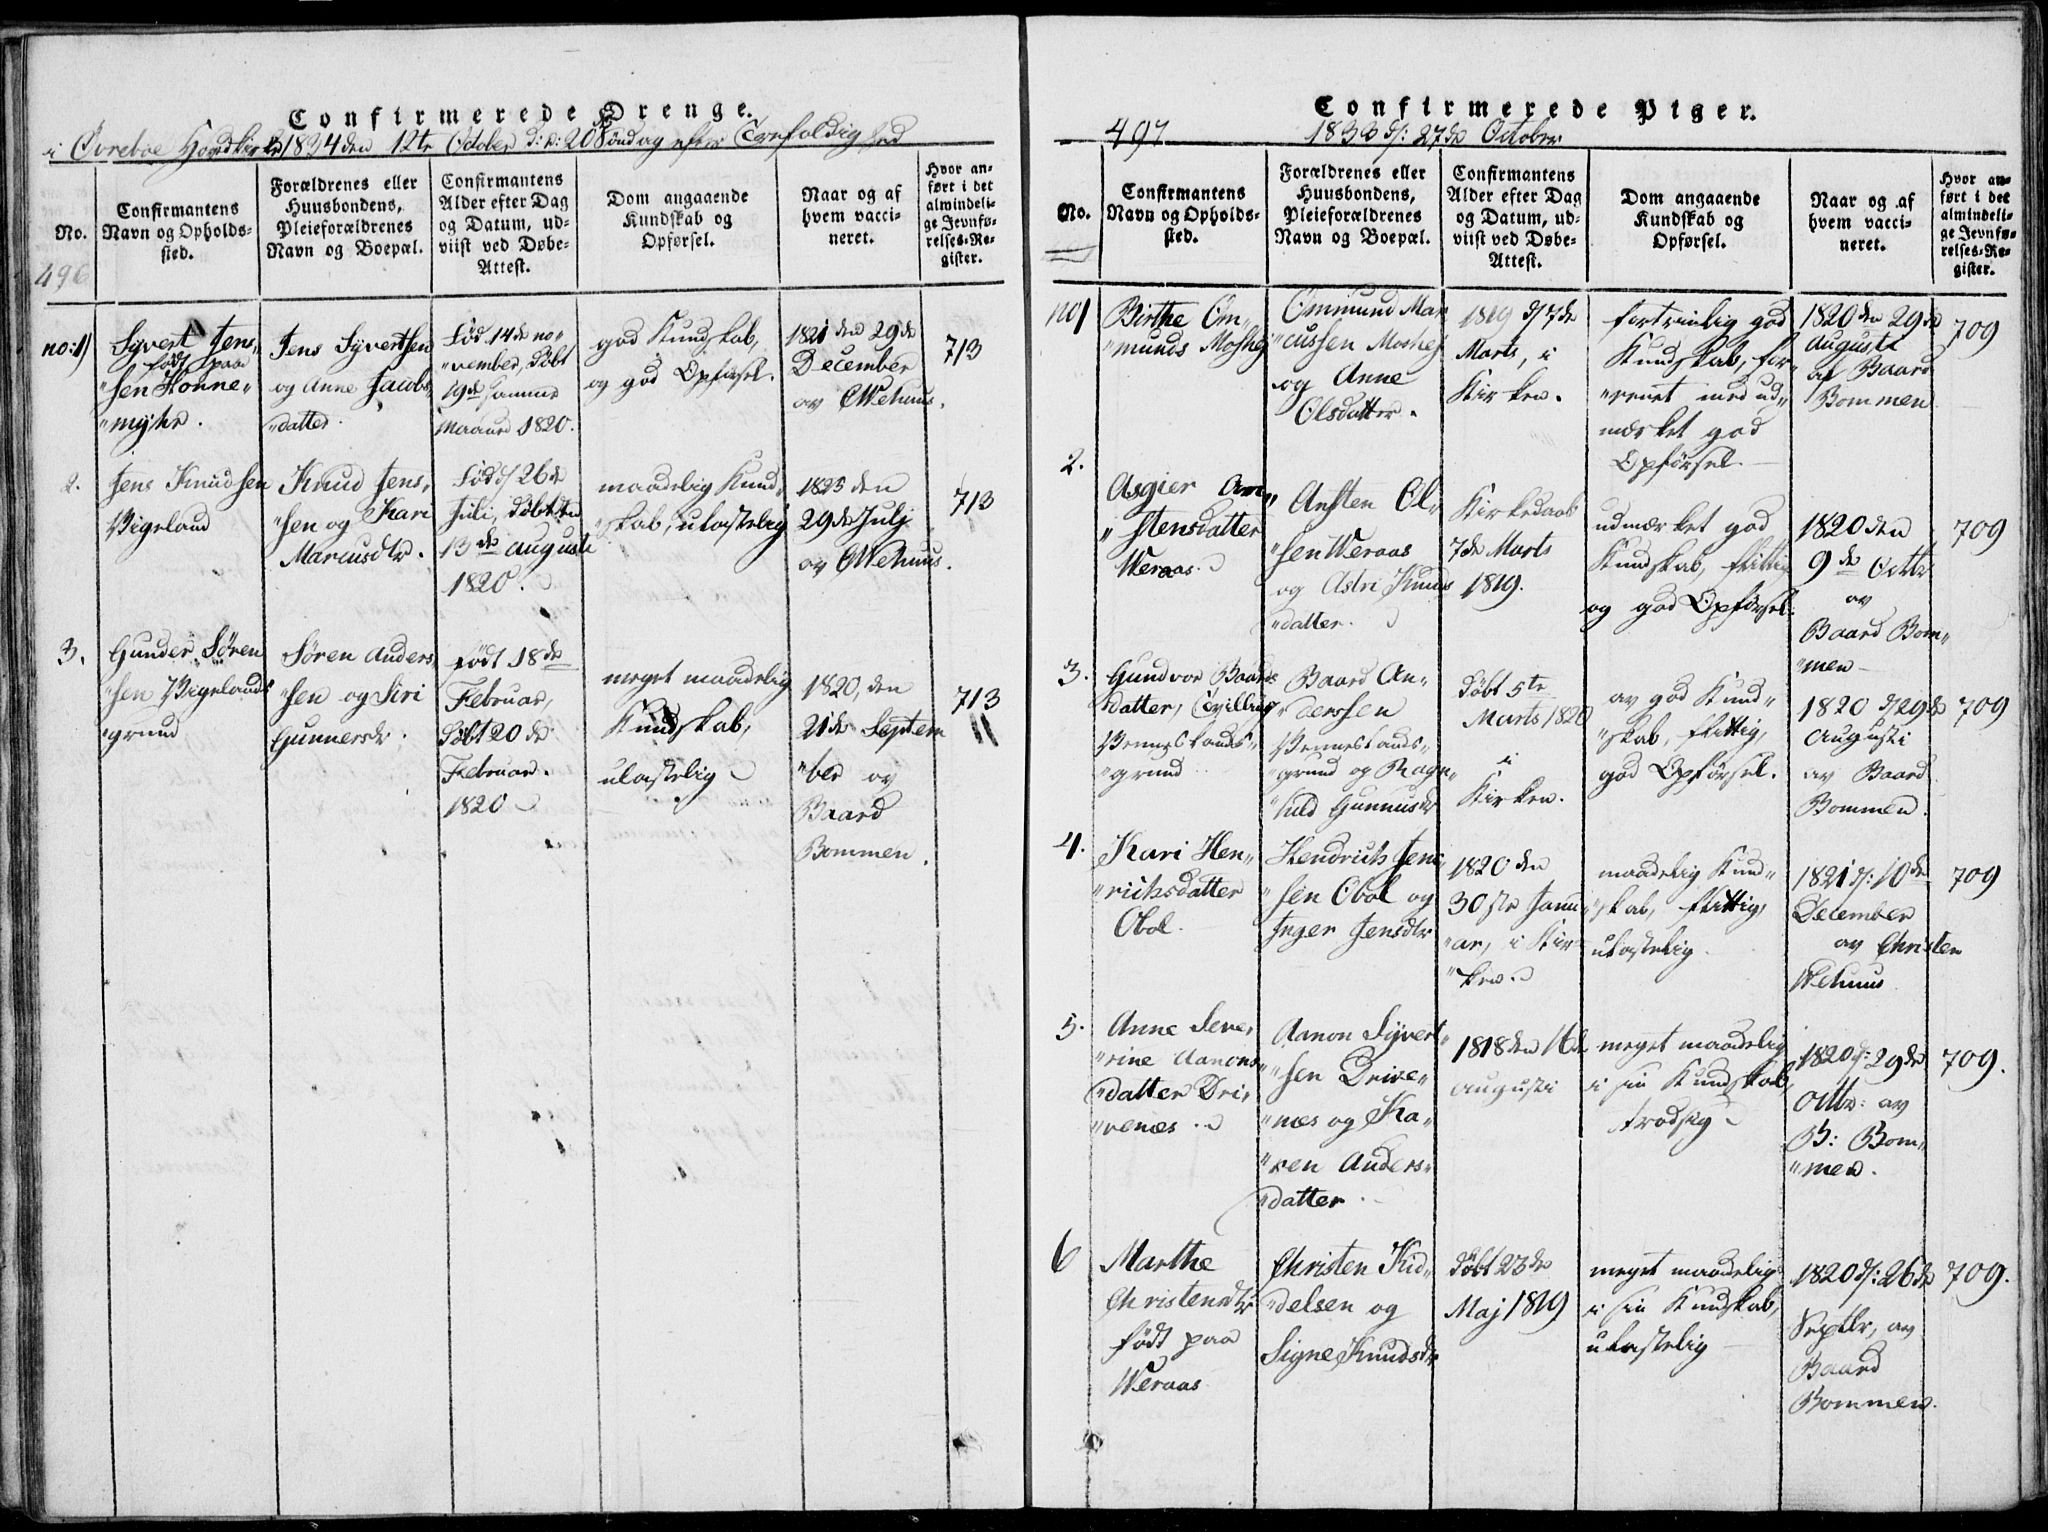 Confirmerede Drenge.
i Øvreboe Hovedkirke 1834 den 12te October d: e: 20 Søndag efter Trefoldighed
496
No.
Confirmantens
Navn og Opholds-
sted.
Forældrenes eller
Huusbondens,
Pleieforældrenes
Navn og Boepæl.
Confirmantens
Alder efter Dag
og Datum, ud-
viist ved Døbe-
Attest.
Dom angaaende
Kundskab og
Opførsel.
Naar og af
hvem vacci-
neret.
Hvor an-
ført i det
almindeli-
ge Jevnfø-
relses-Re-
gister.
no: 1)
Syvert Jens„
født paa
„sen Honne„
„myhr.
Jens Syvertsen
og Anne Jacobs„
„datter.
Fød 14de no„
„vember, Døbt
19de samme
Maaned 1820.
god Kundskab,
og god Opførsel.
1821 den 29de
December
av CWehuus.
713
2.
Jens Knudsen
Vigeland
Knud Jens„
„sen og Kari
Marcusdtr.
Fød d/ 26de
Juli, Døbt den
13de Augusti
1820.
maadelig Kund„
„skab, ulastelig
1825 den
29de Julj
av CWehuus.
713
3.
Gunder Søren
„sen Vigelands
„grund
Søren Anders
„sen og Siri
Gunnersdr.
født 18de
Februar,
Døbt 20de
Februar.
1820
meget maadelig
Kundskab,
ulastelig
1820, den
21de Septem
„ber av
Baard
Bommen.
713
Confirmerede Piger.
497
1833 d/: 27de October
No.
Confirmantens
Navn og Opholds-
sted.
Forældrenes eller
Huusbondens,
Pleieforældrenes
Navn og Boepæl.
Confirmantens
Alder efter Dag
og Datum, ud-
viist ved Døbe-
Attest.
Dom angaaende
Kundskab og
Opførsel.
Naar og af
hvem vacci-
neret.
Hvor an-
ført i det
almindeli-
ge Jevnfø-
relses-Re-
gister.
no 1
Birthe Om„
„munds Moshej
Ommund Mar
„cussen Moshej
og Anne
Olsdatter.
1819 d/ 7de
Marts, i
Kirken.
fortrinlig god
Kundskab, for„
„eenet med ud„
mærket god
Opførsel.
1820 den 29de
Augusti
af Baard
Bommen
709
2.
Asgier Arn„
„stensdatter
Weraas.
Arnsten Ol„
„sen Weraas
og Astri Knuds
„datter.
Kirkedaab
7de Marts
1819.
udmærket god
Kundskab, flittig
og god Opførsel.
1820 den
9de Octbr
av
Baard Bom„
„men
709
3.
Gundvor Baards
datter, Tvilling
Venneslands„
„grund
Baard An„
„derssen
Venneslands„
„grund og Ragn„
„hild Gunnusdr
Døbt 5te
Marts 1820
i
Kirken.
av god Kund„
„skab, flittig,
god Opførsel.
1820 d/ 29de
Augusti
av Baard
Bommen.
709
4.
Kari Hen„
„richsdatter
Obol.
Hendrich Jens„
„sen Obol og
Inger Jensdtr
1820 den
30ste Janu„
„ar, i Kir„
„ken.
maadelig Kund„
„skab, flittig,
ulastelig.
1821 d/: 10de
December
av Christen
Wehuus
709
5.
Anne Seve„
„rine Aanons„
„datter Dri„
„venæs.
Aanon Syvert„
„sen Drive„
„næs og Ka„
„ren Anders„
„datter.
1818 den 16de
Augusti
meget maadelig
i sin Kundskab,
trodsig
1820 d/: 29de
Octbr: av
B: Bom„
„men.
709.
6
Marthe
Christensdtr
født paa
Weraas
Christen Kid„
„delsen og
Signe Knudsdr
Døbt 23de
Maj 1819
meget maadelig
i sin Kundskab,
ulastelig
1820 d/: 26de
Septbr, av
Baard
Bommen.
709.